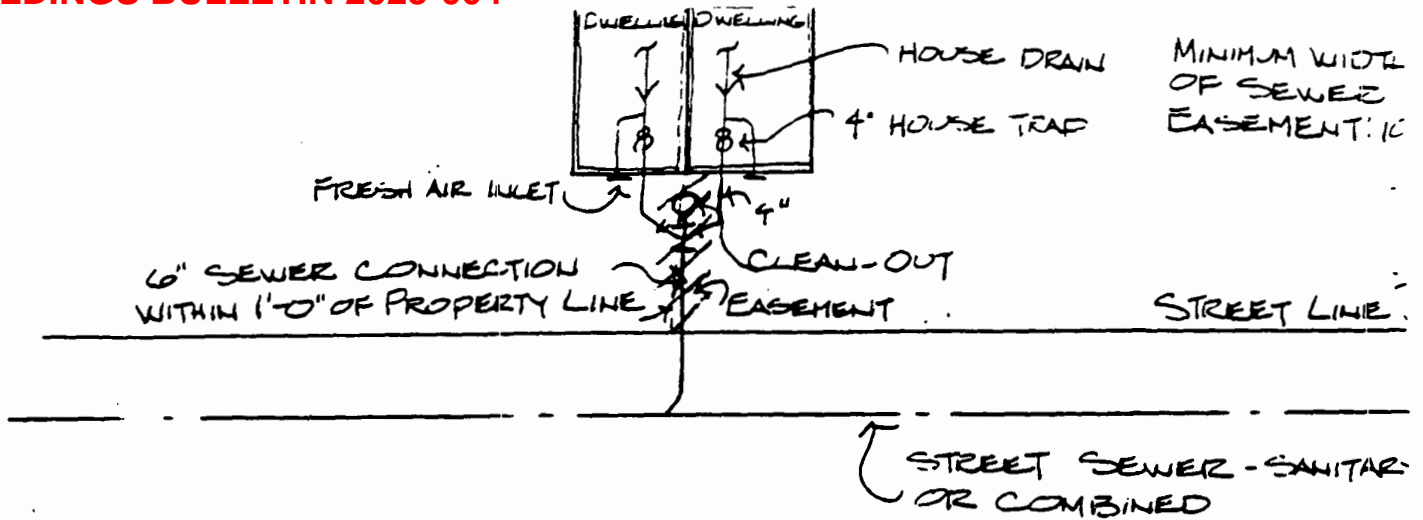 DWELLING
HOUSE DRAIN
4" HOUSE TRAP
MINIMUM WIDTH
OF SEWER
EASEMENT:
FRESH AIR INLET
4"
CLEAN-OUT
6" SEWER CONNECTION
WITHIN 1'-0" OF PROPERTY LINE
EASEMENT
STREET LINE
STREET SEWER - SANITAR
OR COMBINED